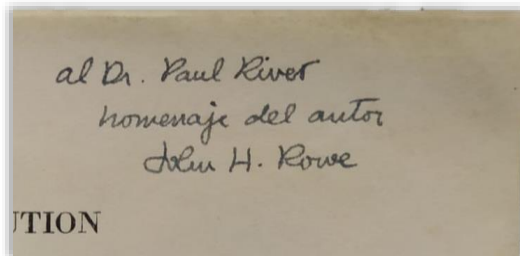 al Dr. Paul Rivet
homenaje del autor
John H. Rowe
UTION